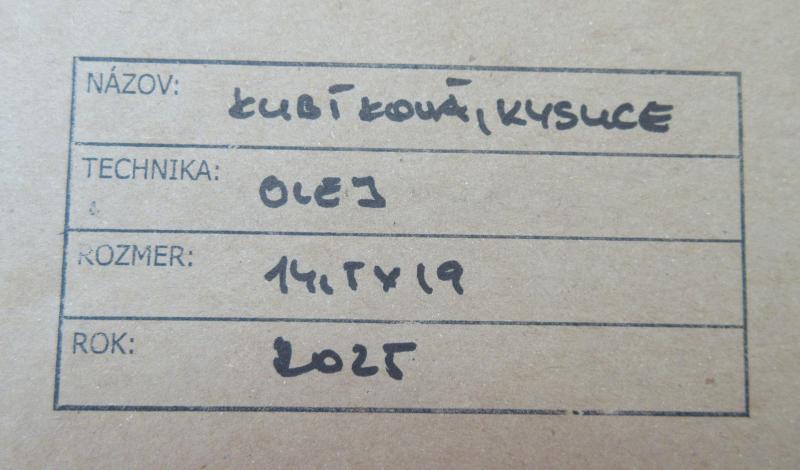 NÁZOV: KUBÍKOVÁ, KYSUCE
TECHNIKA: OLEJ
ROZMER: 14,5 x 19
ROK: 2025